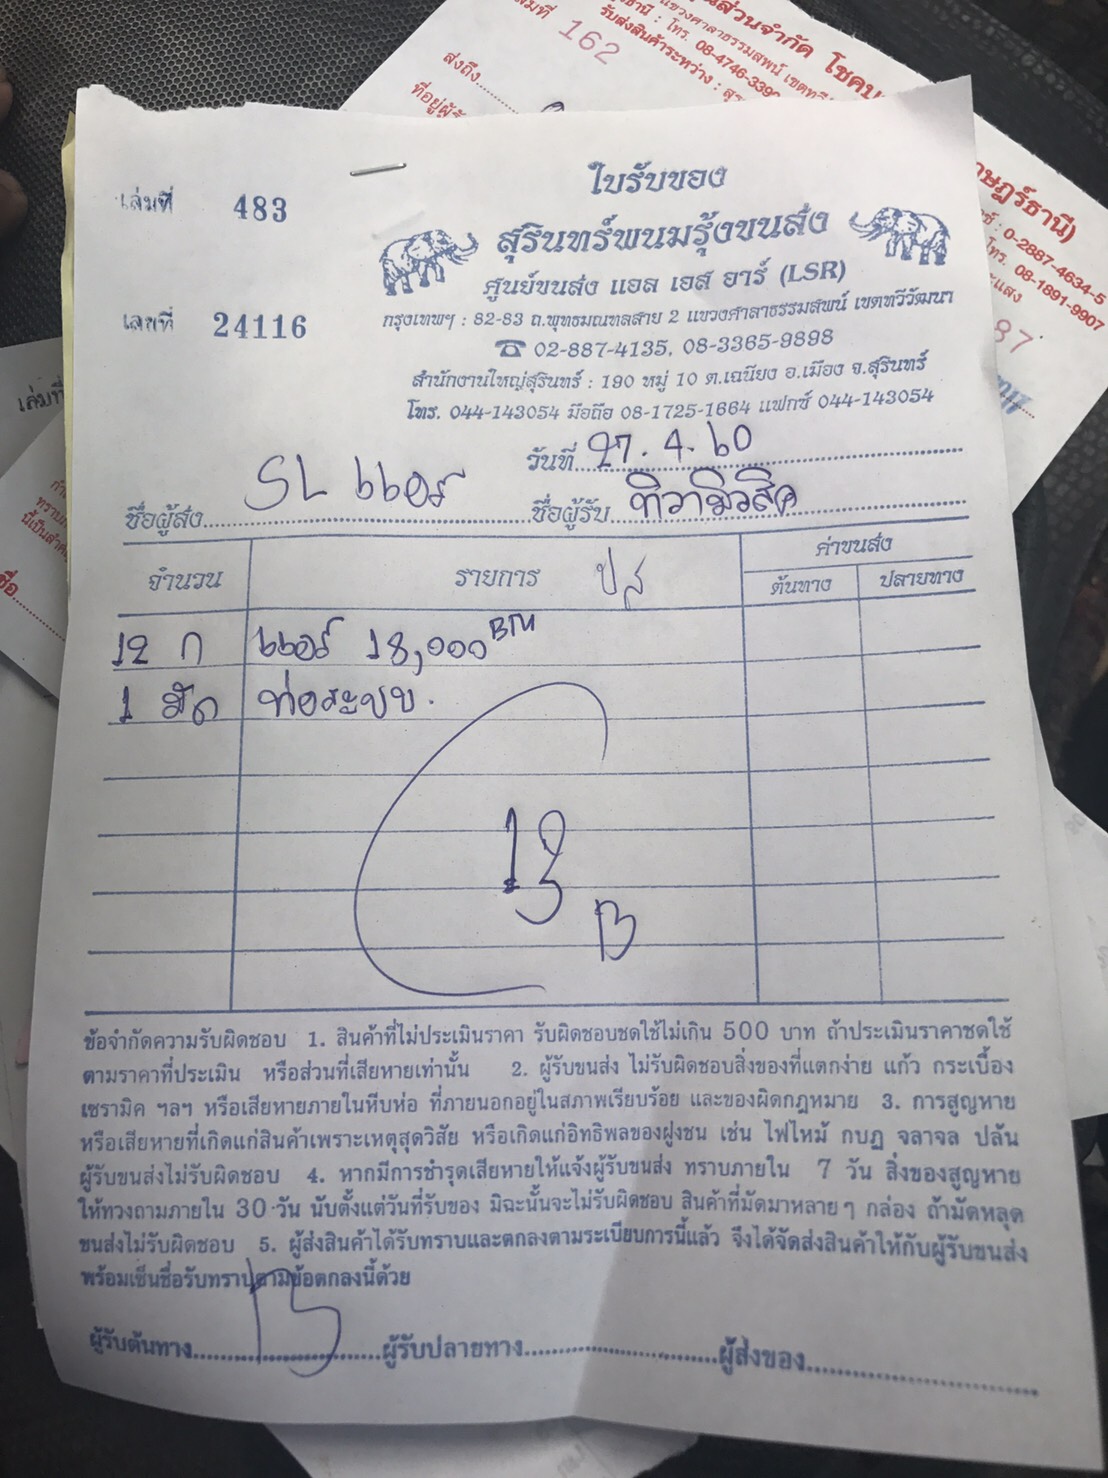 สุ่วนจำกัด โชค
โทร. 08-4746-339
รับส่งสินค้าระหว่าง : สุร
162
ส่งถึง
0-2887-4634-5
โทร. 08-1891-9907
87
เล่มที่ 483
ใบรับของ
สุรินทร์พนมรุ้งขนส่ง
ศูนย์ขนส่ง แอล เอส อาร์ (LSR)
เลขที่ 24116
กรุงเทพฯ : 82-83 ถ.พุทธมณฑลสาย 2 แขวงศาลาธรรมสพน์ เขตทวีวัฒนา
☎ 02-887-4135, 08-3365-9898
สำนักงานใหญ่สุรินทร์ : 190 หมู่ 10 ต.เฉนียง อ.เมือง จ.สุรินทร์
โทร. 044-143054 มือถือ 08-1725-1664 แฟกซ์ 044-143054
วันที่ 27.4.60
ชื่อผู้ส่ง SL แอร์ ชื่อผู้รับ ทิวามิวสิค
จำนวน รายการ ปส ค่าขนส่ง
ต้นทาง ปลายทาง
12 ก แอร์ 18,000 BTU
1 มัด ท่อระบบ.
13
B
ข้อจำกัดความรับผิดชอบ 1. สินค้าที่ไม่ประเมินราคา รับผิดชอบชดใช้ไม่เกิน 500 บาท ถ้าประเมินราคาชดใช้
ตามราคาที่ประเมิน หรือส่วนที่เสียหายเท่านั้น 2. ผู้รับขนส่ง ไม่รับผิดชอบสิ่งของที่แตกง่าย แก้ว กระเบื้อง
เซรามิค ฯลฯ หรือเสียหายภายในหีบห่อ ที่ภายนอกอยู่ในสภาพเรียบร้อย และของผิดกฎหมาย 3. การสูญหาย
หรือเสียหายที่เกิดแก่สินค้าเพราะเหตุสุดวิสัย หรือเกิดแก่อิทธิพลของฝูงชน เช่น ไฟไหม้ กบฏ จลาจล ปล้น
ผู้รับขนส่งไม่รับผิดชอบ 4. หากมีการชำรุดเสียหายให้แจ้งผู้รับขนส่ง ทราบภายใน 7 วัน สิ่งของสูญหาย
ให้ทวงถามภายใน 30 วัน นับตั้งแต่วันที่รับของ มิฉะนั้นจะไม่รับผิดชอบ สินค้าที่มัดมาหลาย ๆ กล่อง ถ้ามัดหลุด
ขนส่งไม่รับผิดชอบ 5. ผู้ส่งสินค้าได้รับทราบและตกลงตามระเบียบการนี้แล้ว จึงได้จัดส่งสินค้าให้กับผู้รับขนส่ง
พร้อมเซ็นชื่อรับทราบตามข้อตกลงนี้ด้วย
ผู้รับต้นทาง ผู้รับปลายทาง ผู้ส่งของ